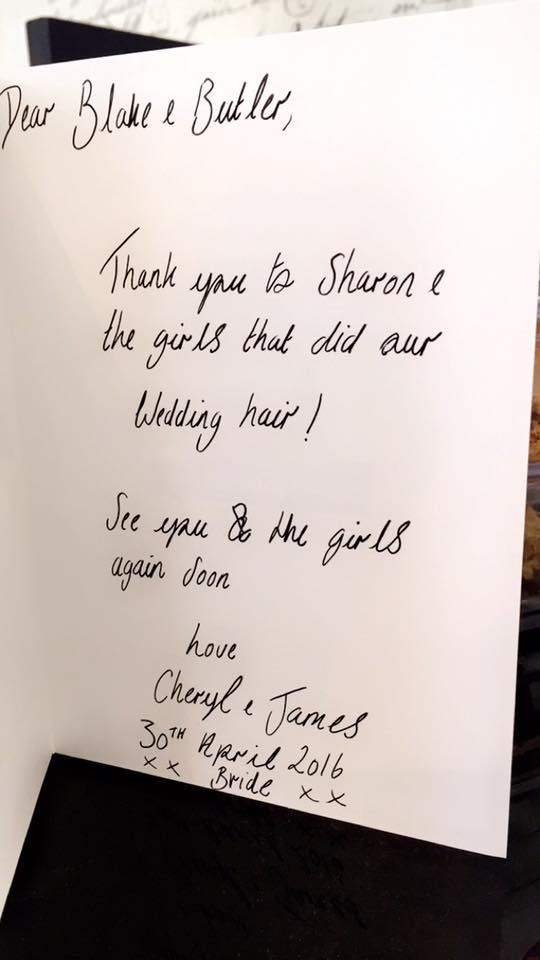 Dear Blake e Butler,
Thank you to Sharon e
the girls that did our
Wedding hair!
See you & the girls
again soon
Love
Cheryl e James
30TH April 2016
x x Bride x x